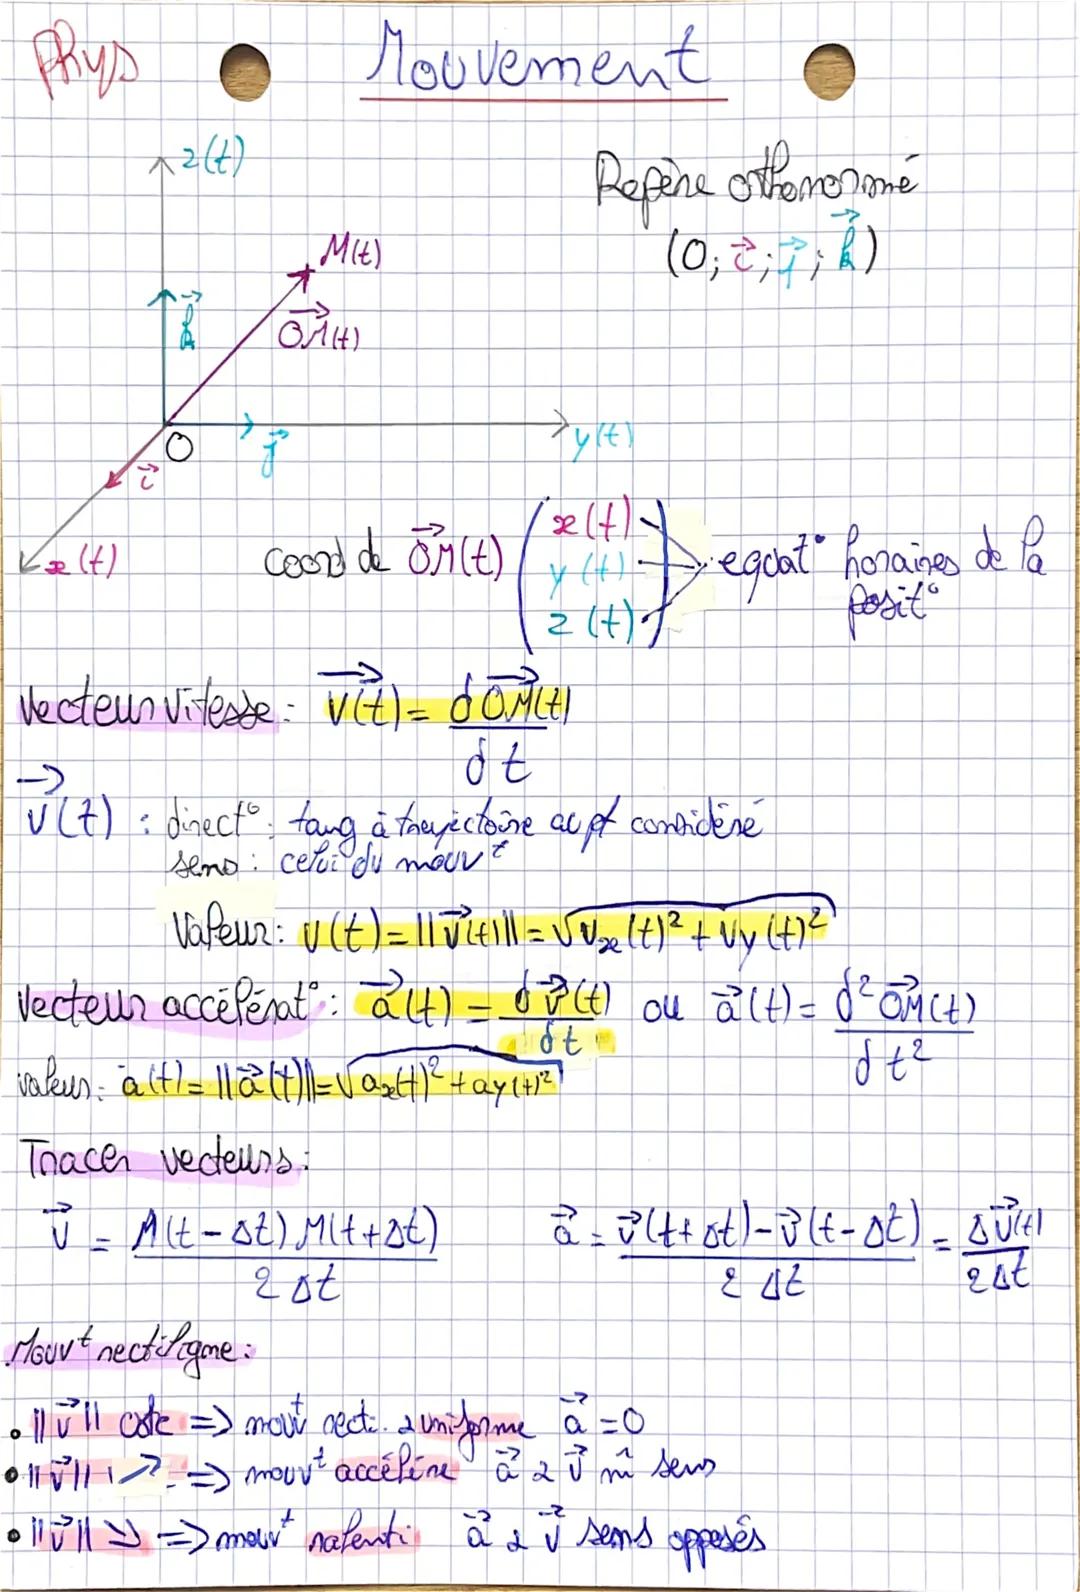 Phys
Mouvement
z(t)
Repère othonormé
(O; i⃗; j⃗; k⃗)
M(t)
k⃗
OM⃗(t)
O
j⃗
y(t)
i⃗
x(t)
coord de OM⃗(t) (x(t) y(t) z(t)) equat° horaires de la posit°
Vecteur vitesse : v⃗(t) = dOM⃗(t) / dt
v⃗(t) : direct° : tang à trajectoire au pt considéré
sens : celui du mouvᵗ
Valeur : v(t) = ||v⃗(t)|| = √(vx(t)² + vy(t)²)
Vecteur accélérat° : a⃗(t) = dv⃗(t) / dt ou a⃗(t) = d²OM⃗(t) / dt²
valeur : a(t) = ||a⃗(t)|| = √(ax(t)² + ay(t)²)
Tracer vecteurs :
v⃗ = M(t-Δt) M(t+Δt) / 2Δt a⃗ = v⃗(t+Δt) - v⃗(t-Δt) / 2Δt = Δv⃗(t) / 2Δt
Mouvᵗ rectiligne :
• ||v⃗|| cste => mouvᵗ recti. & uniforme a⃗ = 0
• ||v⃗|| ↗ => mouvᵗ accéléré a⃗ & v⃗ m̂ sens
• ||v⃗|| ↘ => mouvᵗ ralenti a⃗ & v⃗ sens opposés